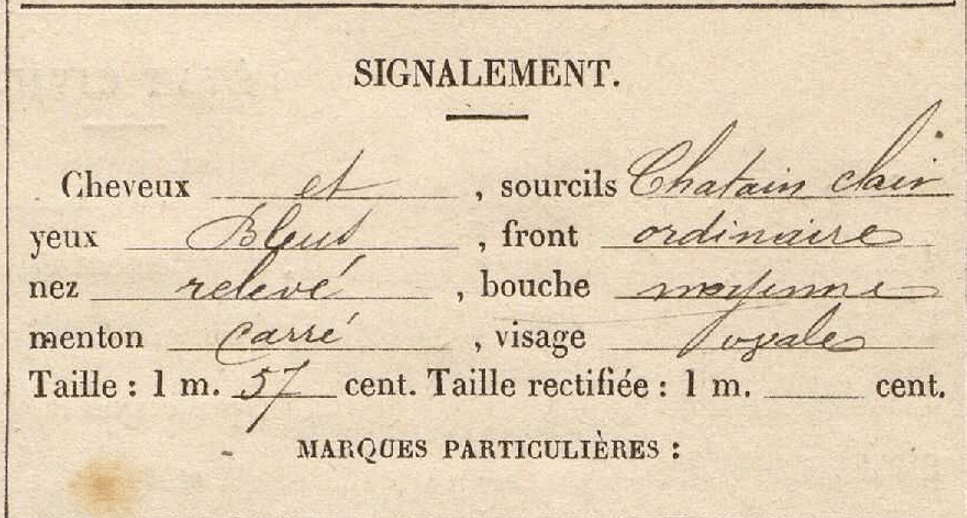 SIGNALEMENT.
Cheveux et , sourcils Chatain clair
yeux Bleus , front ordinaire
nez relevé , bouche moyenne
menton carré , visage ovale
Taille : 1 m. 57 cent. Taille rectifiée : 1 m. cent.
MARQUES PARTICULIÈRES :